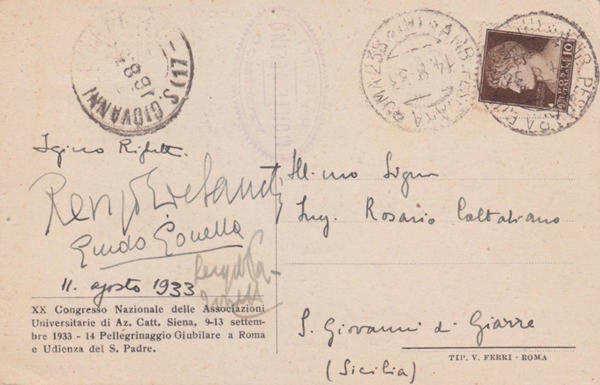 S. GIOVANNI
10
Igino Righetti
Guido Gonella
11. agosto 1933
XX Congresso Nazionale delle Associazioni
Universitarie di Az. Catt. Siena, 9-13 settem-
bre 1933 - 14 Pellegrinaggio Giubilare a Roma
e Udienza del S. Padre.
Ill.mo Signor
Ing. Rosario Caltabiano
S. Giovanni di Giarre
(Sicilia)
TIP. V. FERRI - ROMA